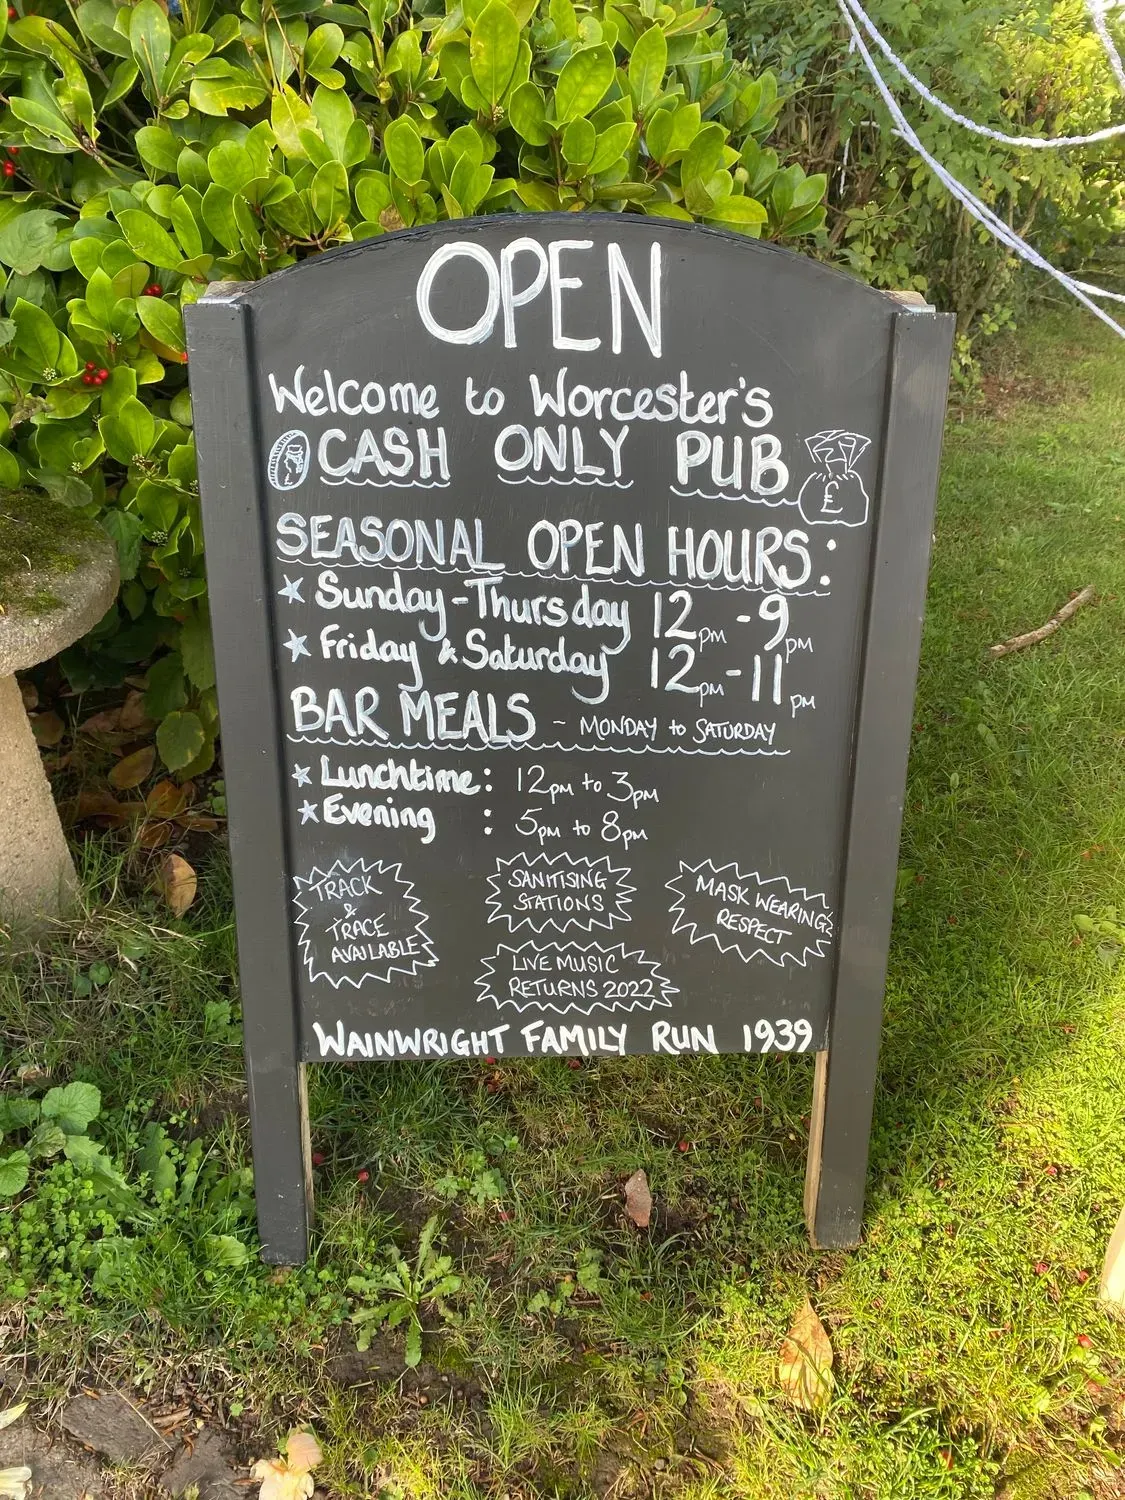 OPEN
Welcome to Worcester's
CASH ONLY PUB
£
SEASONAL OPEN HOURS:
Sunday-Thursday 12pm-9pm
Friday & Saturday 12pm-11pm
BAR MEALS ~ MONDAY to SATURDAY
Lunchtime: 12pm to 3pm
Evening : 5pm to 8pm
TRACK
&
TRACE
AVAILABLE
SANITISING
STATIONS
MASK WEARING
RESPECT
LIVE MUSIC
RETURNS 2022
WAINWRIGHT FAMILY RUN 1939